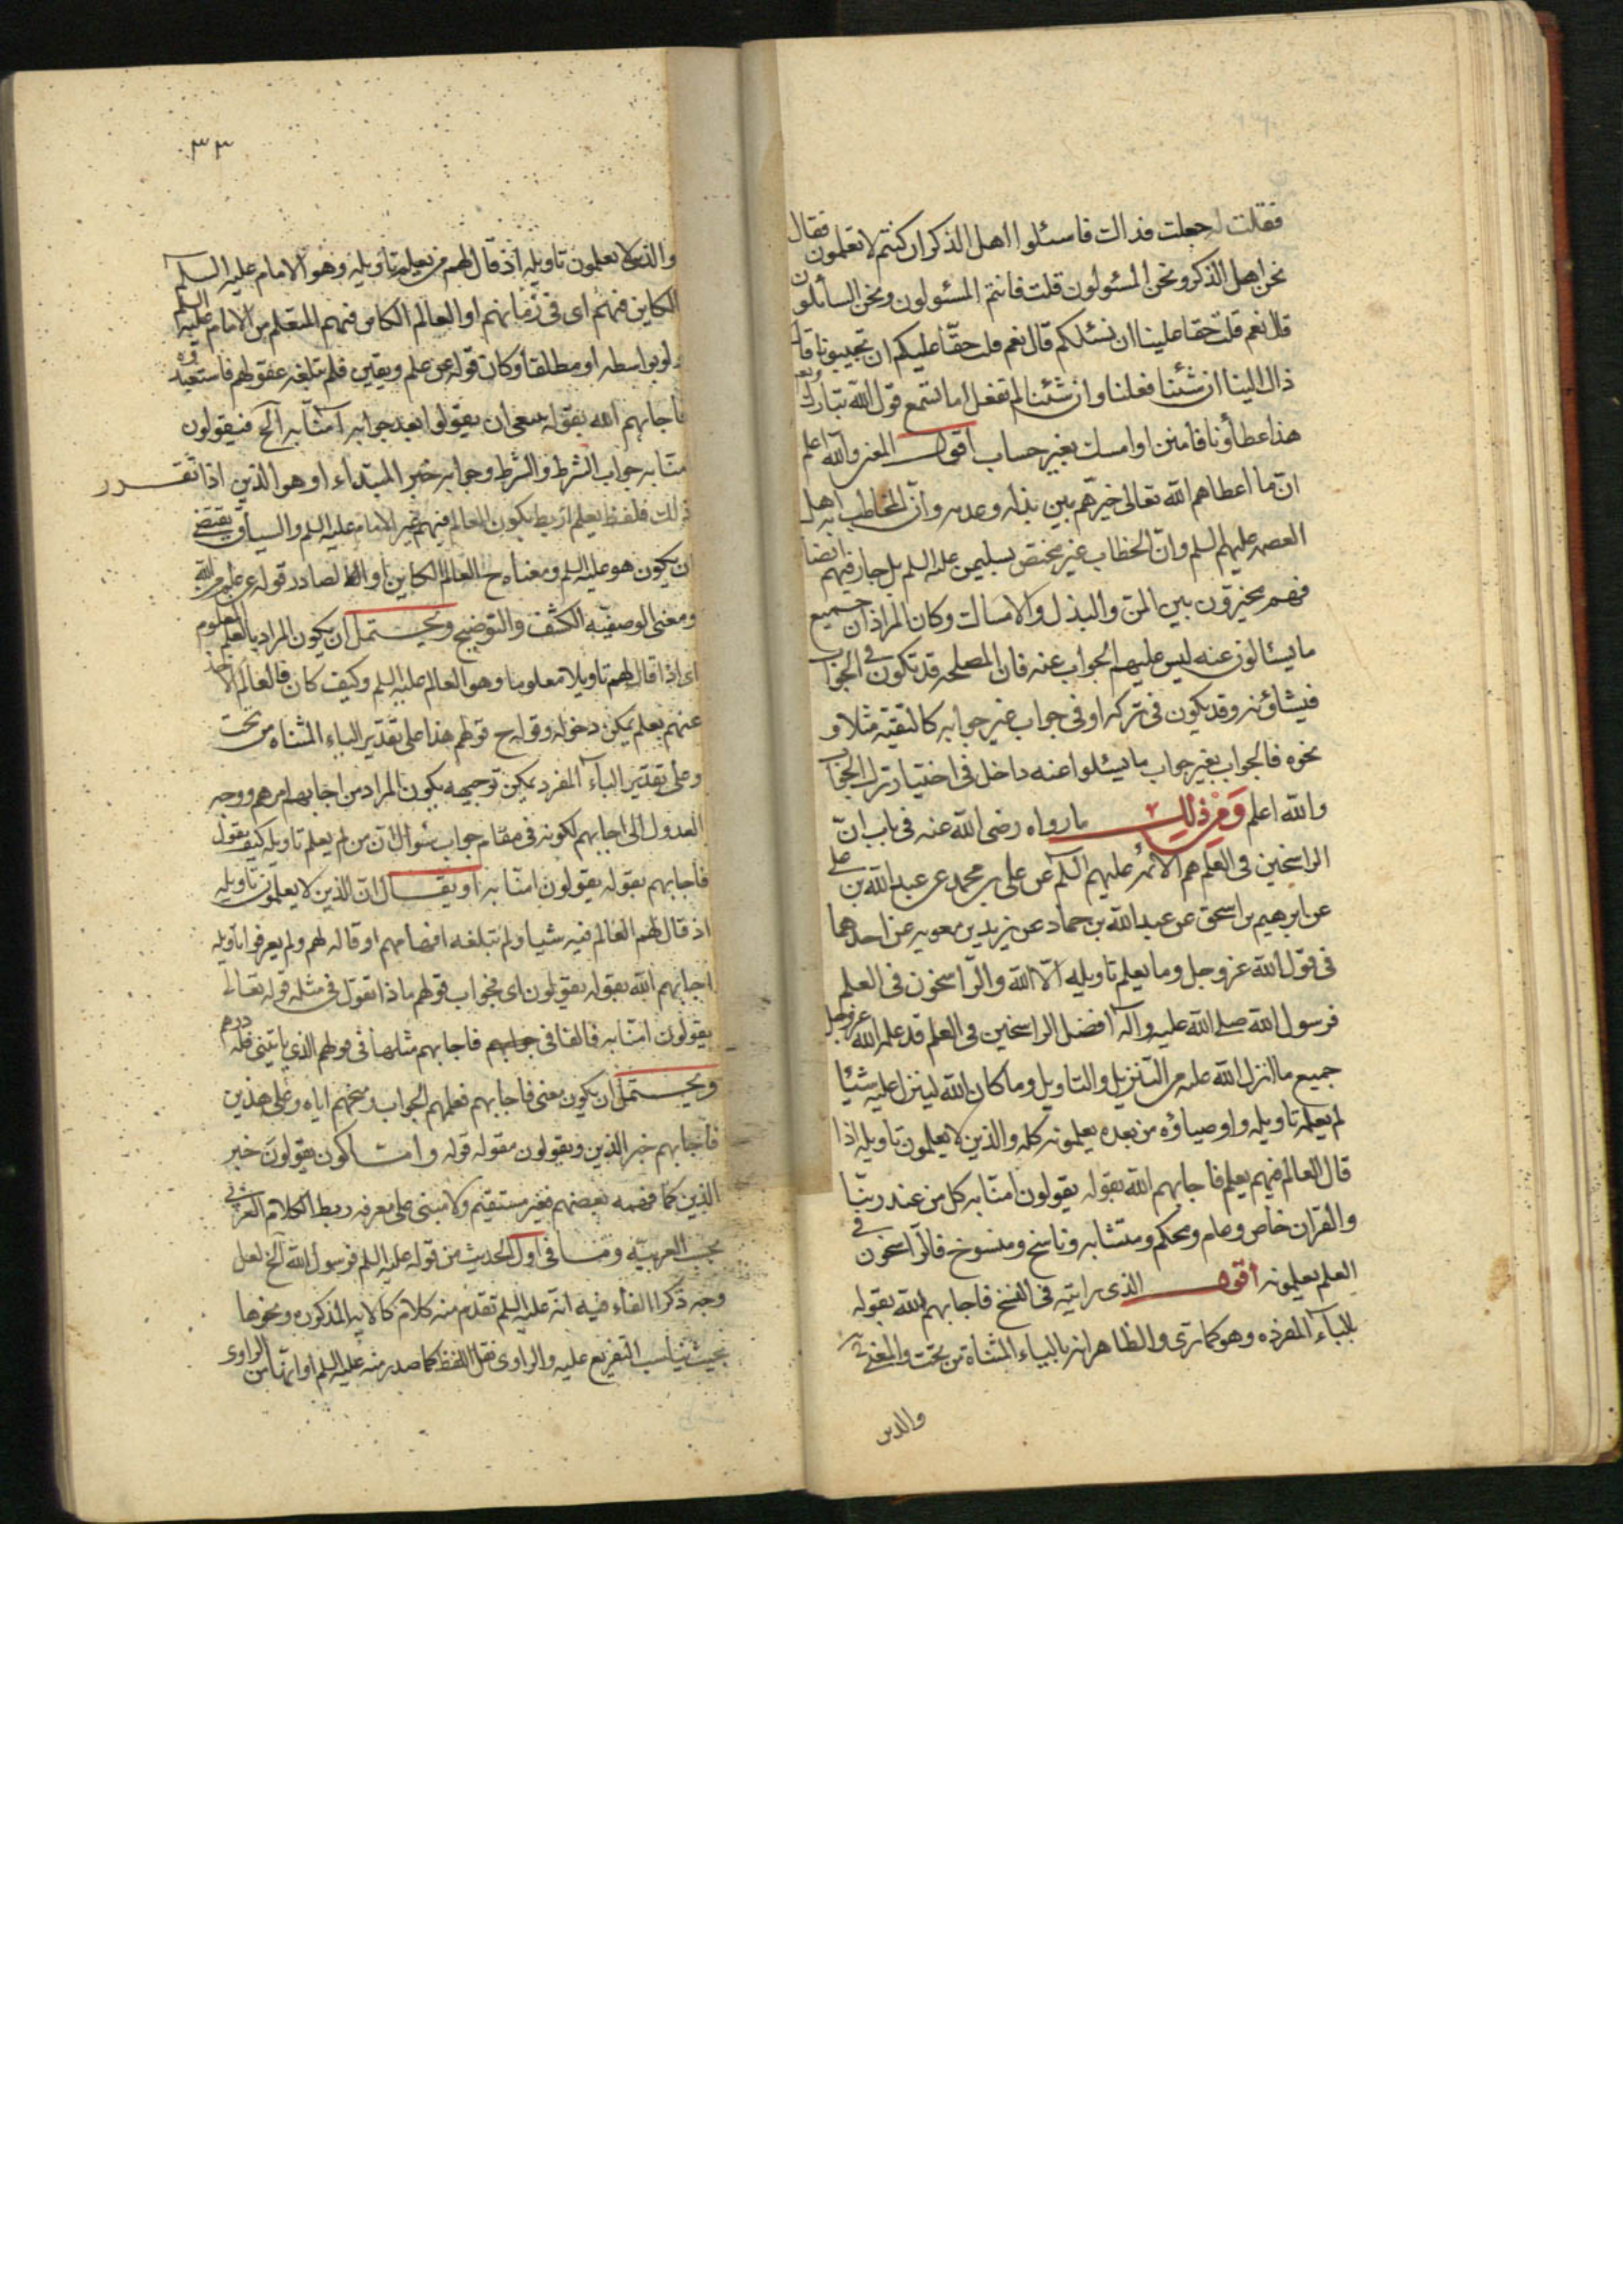 فقلت له جعلت فداك فاسئلوا اهل الذكر ان كنتم لا تعلمون فقال
نحن اهل الذكر ونحن المسئولون قلت فانتم المسئولون ونحن السائلون
قال نعم قلت حقا علينا ان نسئلكم قال نعم قلت حقا عليكم ان تجيبونا قال
ذاك الينا ان شئنا فعلنا وان شئنا لم نفعل اما تسمع قول الله تبارك وتع
هذا عطاؤنا فامنن او امسك بغير حساب اقول المعنى والله اعلم
ان ما اعطاهم الله تعالى خيرهم بين بذله وعدمه وان المخاطب به اهل
العصمه عليهم السلم وان الخطاب غير مختص بسليمن عليه السلم بل جار فيهم ايضا
فهم مخيرون بين المن والبذل والامساك وكان المراد ان جميع
ما يسئالون عنه ليس عليهم الجواب عنه فان المصلحه قد تكون في الجواب
فيشاؤنه وقد يكون في تركه او في جواب غير جوابه كالتقية مثلا و
نحوه فالجواب بغير جواب ما يسئلوا عنه داخل في اختيار ترك الجواب
والله اعلم ومن ذلك ما رواه رضى الله عنه في باب ان
الراسخين في العلم هم الائمه عليهم السلم عن على بن محمد عن عبد الله بن على
عن ابرهيم بن اسحق عن عبد الله بن حماد عن بريد بن معويه عن احدهما
في قول الله عز وجل وما يعلم تاويله الا الله والراسخون في العلم
فرسول الله صلى الله عليه واله افضل الراسخين في العلم قد علمه الله عز وجل
جميع ما انزل الله عليه من التنزيل والتاويل وما كان الله لينزل عليه شيئا
لم يعلمه تاويله واوصياؤه من بعده يعلمونه كله والذين لا يعلمون تاويله اذا
قال العالم فيهم بعلم فاجابهم الله بقوله يقولون امنا به كل من عند ربنا
والقران خاص وعام ومحكم ومتشابه وناسخ ومنسوخ فالراسخون في
العلم يعلمونه اقول الذى رايته في النسخ فاجابهم الله بقوله
بالباء المفرده وهو كما ترى والظاهر انه بالياء المثناه من تحت والمعنى
والذين
٣٣
والذين لا يعلمون تاويله اذ قال لهم من يعلم تاويله وهو الامام عليه السلم
الكاين فيهم اى في زمانهم او العالم الكاين فيهم المتعلم من الامام عليه السلم
ولو بواسطه او مطلقا وكان قوله عن علم ويقين فلم تبلغه عقولهم فاستعبدوه
فاجابهم الله بقوله بمعنى ان يقولوا بعد جوابه امنا به الخ فيقولون
امنا به جواب الشرط والشرط وجوابه خبر المبتداء او هو الذين اذا تقرر
ذلك فلفظ بعلم يكون العالم فيهم غير الامام عليه السلم والسياق يقتضى
ان يكون هو عليه السلم ومعناه ح العالم الكاين او الصادر قوله عن علم من الله
ومعنى الوصفيه الكشف والتوضيح ويحتمل ان يكون المراد بالعلم المعلوم
اى اذا قال لهم تاويلا معلوما وهو العالم عليه السلم وكيف كان فالعالم الاخذ
عنهم بعلم يمكن دخوله وقوله ح قولهم هذا على تقدير الياء المثناه من تحت
وعلى تقدير الباء المفرد يمكن توجيهه بكون المراد من اجابهم امرهم ووجه
العدول الى اجابهم لكونه في مقام جواب سئوال ان من لم يعلم تاويله كيف يقول
فاجابهم بقوله يقولون امنا به او يقال ان الذين لا يعلمون تاويله
اذ قال لهم العالم فيه شيا ولم تبلغه افهامهم او قاله لهم ولم يعرفوا تاويله
اجابهم الله بقوله يقولون اى جواب قولهم ماذا نقول في مثله قوله تعالى
يقولون امنا به فالفا في جوابهم فاجابهم مثلها في قولهم الذى ياتينى فله درهم
ويحتمل ان يكون معنى فاجابهم فعلمهم الجواب ومنحهم اياه وعلى هذين
فاجابهم خبر الذين ويقولون مقوله قوله واما كون يقولون خبر
الذين كما فهمه بعضهم فغير مستقيم ولا مبنى على معرفه ربط الكلام العربى
بحسب العربيه وما في اول الحديث من قوله عليه السلم فرسول الله الخ لعل
وجه ذكر الفاء فيه انه عليه السلم تقدم منه كلام كالايه المذكوره ونحوها
بحيث يناسب التفريع عليه والراوى نقل اللفظ كما صدر منه عليه السلم او انها من الراوى